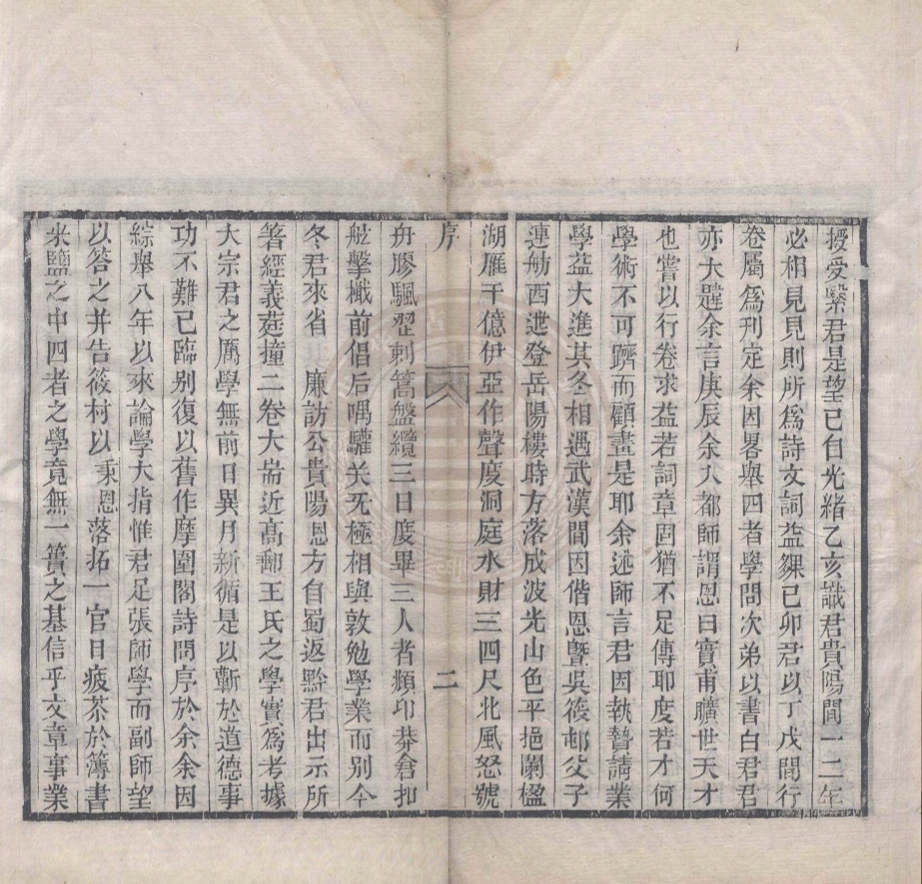 授受繄君是望已自光緒乙亥識君貴陽間一二年
必相見見則所爲詩文詞益夥已卯君以丁戊間行
卷屬爲刊定余因畧舉四者學問次弟以書白君君
亦大韙余言庚辰余入都師謂恩曰實甫曠世天才
也嘗以行卷求益若詞章固猶不足傳耶度若才何
學術不可躋而顧畫是耶余述師言君因執贄請業
學益大進其冬相遇武漢間因偕恩曁吳筱邨父子
連舫西迣登岳陽樓時方落成波光山色平挹闌楹
湖雁千億伊亞作聲度洞庭水財三四尺北風怒號
序
二
舟膠颿翌刺篙盤纜三日度畢三人者頫卬莽倉扣
舷擊檝前倡后喁驩关旡極相與敦勉學業而别今
冬君來省 廉訪公貴陽恩方自蜀返黔君出示所
箸經義莛撞二卷大耑近高郵王氏之學實爲考據
大宗君之厲學無前日異月新循是以蘄於道德事
功不難已臨别復以舊作摩圍閣詩問序於余余因
綜舉八年以來論學大指惟君足張師學而副師望
以答之并告筱村以秉恩落拓一官日疲苶於簿書
米鹽之中四者之學竟無一簣之基信乎文章事業